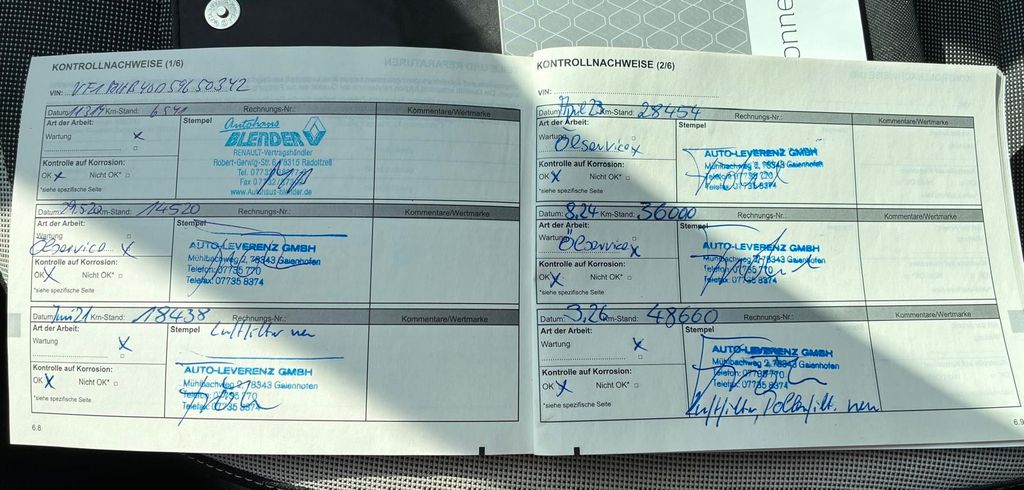 KONTROLLNACHWEISE (1/6)
VIN:
Datum: Km-Stand: 6541 Rechnungs-Nr.: Kommentare/Wertmarke
Art der Arbeit: Stempel
Wartung x
Autohaus
BLENDER
RENAULT-Vertragshändler
Robert-Gerwig-Str. 6 78315 Radolfzell
Tel. 07732
Fax 07732
www.Autohaus-Blender.de
Kontrolle auf Korrosion:
OK x Nicht OK* □
*siehe spezifische Seite
Datum: 29.5.20 Km-Stand: 14520 Rechnungs-Nr.: Kommentare/Wertmarke
Art der Arbeit: Stempel
Wartung □
Ölservice x
AUTO-LEVERENZ GMBH
Mühlbachweg 2, 78343 Gaienhofen
Telefon: 07735 770
Telefax: 07735 8374
Kontrolle auf Korrosion:
OK x Nicht OK* □
*siehe spezifische Seite
Datum: Juni 21 Km-Stand: 18438 Rechnungs-Nr.: Kommentare/Wertmarke
Art der Arbeit: Stempel Luftfilter neu
Wartung x
AUTO-LEVERENZ GMBH
Mühlbachweg 2, 78343 Gaienhofen
Telefon: 07735 770
Telefax: 07735 8374
Kontrolle auf Korrosion:
OK x Nicht OK* □
*siehe spezifische Seite
6.8
KONTROLLNACHWEISE (2/6)
VIN:
Datum: April 23 Km-Stand: 28454 Rechnungs-Nr.: Kommentare/Wertmarke
Art der Arbeit: Stempel
Wartung
Ölservice x
AUTO-LEVERENZ GMBH
Mühlbachweg 2, 78343 Gaienhofen
Telefon: 07735 770
Telefax: 07735 8374
Kontrolle auf Korrosion:
OK x Nicht OK* □
*siehe spezifische Seite
Datum: 8.24 Km-Stand: 36000 Rechnungs-Nr.: Kommentare/Wertmarke
Art der Arbeit: Stempel
Wartung □
Ölservice x
AUTO-LEVERENZ GMBH
Mühlbachweg 2, 78343 Gaienhofen
Telefon: 07735 770
Telefax: 07735 8374
Kontrolle auf Korrosion:
OK x Nicht OK* □
*siehe spezifische Seite
Datum: 3.26 Km-Stand: 48660 Rechnungs-Nr.: Kommentare/Wertmarke
Art der Arbeit: Stempel
Wartung x
AUTO-LEVERENZ GMBH
Mühlbachweg 2, 78343 Gaienhofen
Telefon: 07735 770
Telefax: 07735 8374
Luftfilter, Pollenfilt. neu
Kontrolle auf Korrosion:
OK x Nicht OK* □
*siehe spezifische Seite
6.9